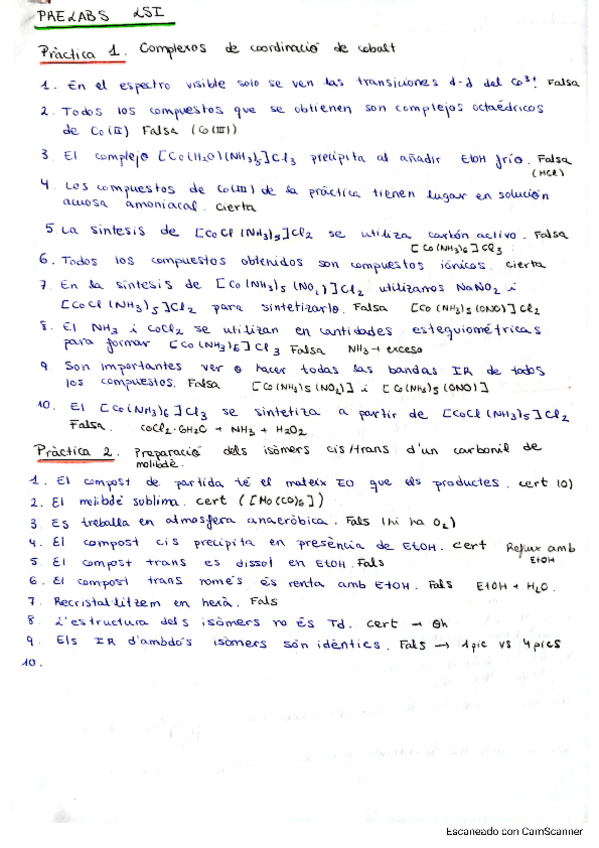 PRELABS LSI
Pràctica 1. Complexos de coordinació de cobalt
1. En el espectro visible solo se ven las transiciones d-d del Co³⁺. Falsa
2. Todos los compuestos que se obtienen son complejos octaédricos
de Co(II) Falsa (Co(III))
3. El complejo [Co(H2O)(NH3)5]Cl3 precipita al añadir EtOH frío. Falsa
(HCl)
4. Los compuestos de Co(III) de la práctica tienen lugar en solución
acuosa amoniacal. Cierta
5. La síntesis de [CoCl(NH3)5]Cl2 se utiliza carbón activo. Falsa
[Co(NH3)6]Cl3
6. Todos los compuestos obtenidos son compuestos iónicos. Cierta
7. En la síntesis de [Co(NH3)5(NO2)]Cl2 utilizamos NaNO2 i
[CoCl(NH3)5]Cl2 para sintetizarlo. Falsa [Co(NH3)5(ONO)]Cl2
8. El NH3 i CoCl2 se utilizan en cantidades estequiométricas
para formar [Co(NH3)6]Cl3 Falsa NH3 → exceso
9. Son importantes ver o hacer todas las bandas IR de todos
los compuestos. Falsa [Co(NH3)5(NO2)] i [Co(NH3)5(ONO)]
10. El [Co(NH3)6]Cl3 se sintetiza a partir de [CoCl(NH3)5]Cl2
Falsa. CoCl2·6H2O + NH3 + H2O2
Pràctica 2. Preparació dels isòmers cis/trans d'un carbonil de
molibdè.
1. El compost de partida té el mateix EO que els productes. cert (0)
2. El molibdè sublima. cert ([Mo(CO)6])
3. Es treballa en atmosfera anaeròbica. Fals (hi ha O2)
4. El compost cis precipita en presència de EtOH. Cert Reflux amb
EtOH
5. El compost trans es dissol en EtOH. Fals
6. El compost trans només és renta amb EtOH. Fals EtOH + H2O.
7. Recristal·litzem en hexà. Fals
8. L'estructura dels isòmers no és Td. cert → Oh
9. Els IR d'ambdós isòmers són idèntics. Fals → 1 pic vs 4 pics
10.
Escaneado con CamScanner